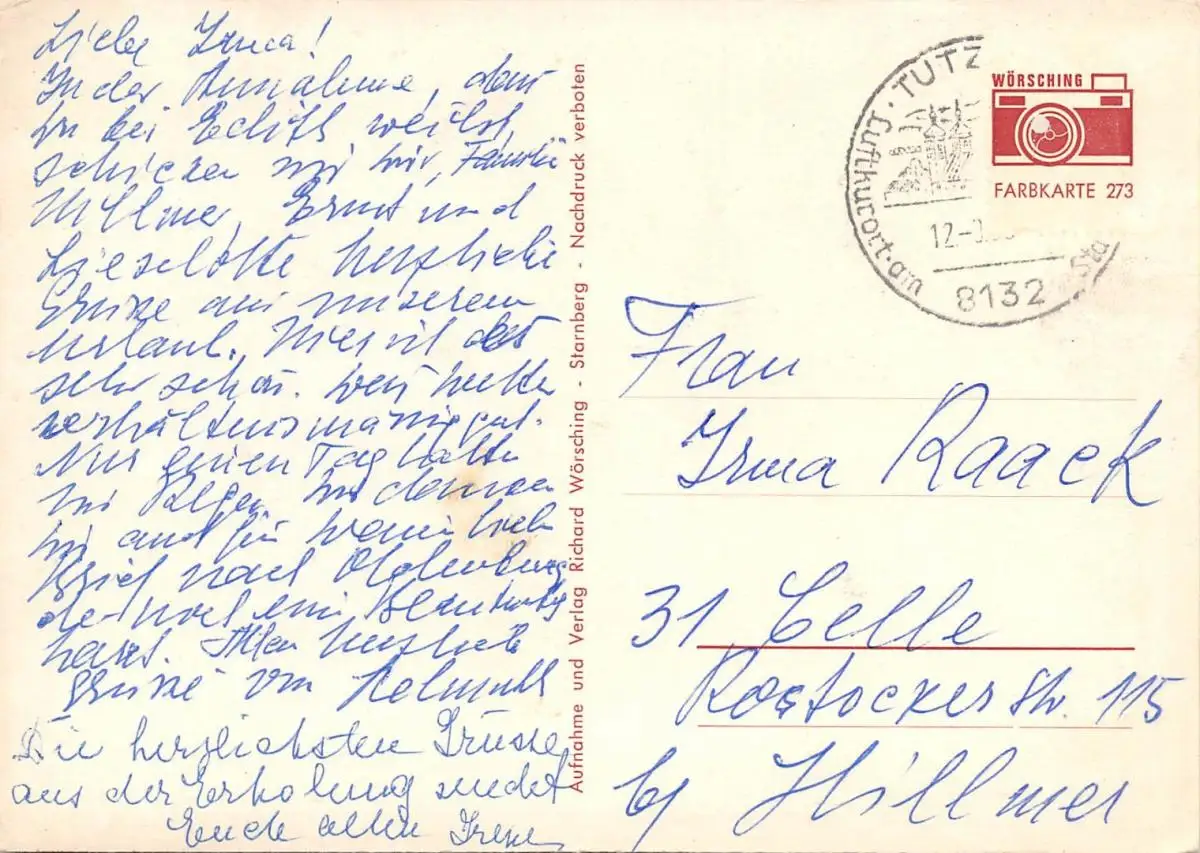 Liebe Irma!
In der Annahme, dass
Du bei Edith weilst,
schicken wir Dir, Familie
Hillmer, Ernst und
Lieselotte herzliche
Grüsse aus unserem
Urlaub. Hier ist es
sehr schön. Wetter
verhältnismässig gut.
Nur einen Tag hatten
wir Regen. Wir
wir auch für
nach Oldenburg
Allen herzliche
Grüsse von Helmuth
Die herzlichsten Grüsse
aus der Erholung sendet
Euch allen Irene
Aufnahme und Verlag Richard Wörsching - Starnberg - Nachdruck verboten
TUTZ
Luftkurort · am Sta
12-
8132
WÖRSCHING
FARBKARTE 273
Frau
Irma Raack
31 Celle
Rostocker Str. 115
b/ Hillmer